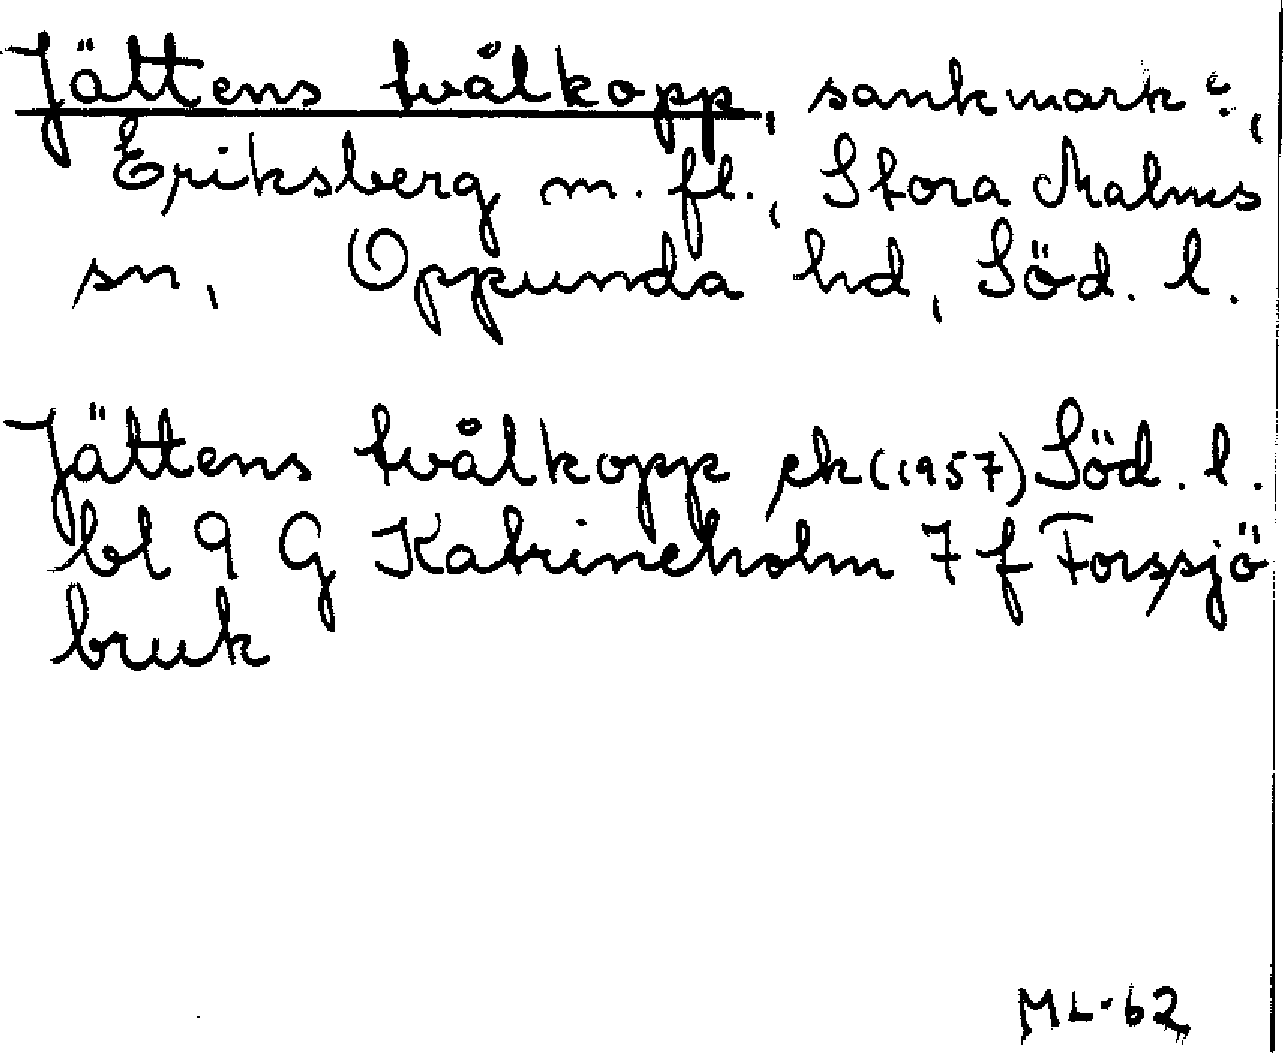 Jättens tvålkopp, sankmark?,
Eriksberg m. fl., Stora Malms
sn, Oppunda hd, Söd. l.
Jättens tvålkopp ek (1957) Söd. l.
bl 9 G Katrineholm 7 f Forssjö
bruk
ML-62